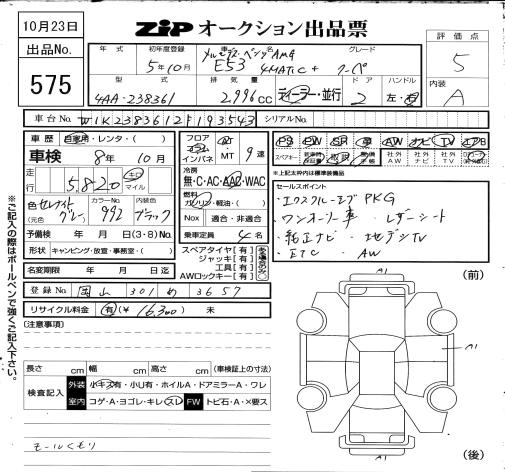 10月23日
出品No.
575
ZIP オークション出品票
評価点
5
内装
A
年式
初年度登録
5年10月
車名
メルセデス・ベンツAMG
E53
グレード
4MATIC+ クーペ
型式
4AA-238361
排気量
2,996cc
ディーラー・並行
ドア
2
ハンドル
左・右
車台No.
W1K2383612F193543
シリアルNo.
車歴
自家用・レンタ・( )
車検
8年10月
走行
5,820
km
マイル
色
セレナイトグレー
(元色)
カラーNo.
992
内装色
ブラック
予備検
年 月 日(3・8)No.
形状
キャンピング・放置・事務室・( )
名変期限
年 月 日迄
登録No
岡山 301 め 3657
リサイクル料金
有(¥ 16300 ) 未
[注意事項]
フロア
コラム
インパネ
AT
MT
9速
冷房
無・C・AC・AAC・WAC
燃料
ガソリン・軽油・( )
Nox
適合・非適合
乗車定員
4名
スペアタイヤ[有]
ジャッキ[有]
工具[有]
AWロックキー[有]
PS
PW
SR
革
AW
ナビ
TV
エアB
スペアキー
新車保証書
取説
整備手帳
社外AW
社外ナビ
社外TV
*上記太枠内は標準装備品
セールスポイント
・エクスクルーシブPKG
・ワンオーナー車 ・レザーシート
・純正ナビ ・地デジTV
・ETC ・AW
長さ cm
幅 cm
高さ cm
(車検証上の寸法)
検査記入
外装
小キズ有・小U有・ホイルA・ドアミラーA・ワレ
室内
コゲ・A・ヨゴレ・キレ・スレ
FW
トビ石・A・×要ス
モールくもり
(前)
A1
A1
A1
(後)
※ご記入の際はボールペンで強くご記入下さい。